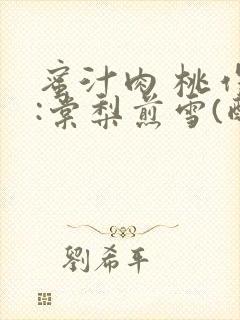 蜜汁肉桃作
:棠梨煎雪(
劉希平